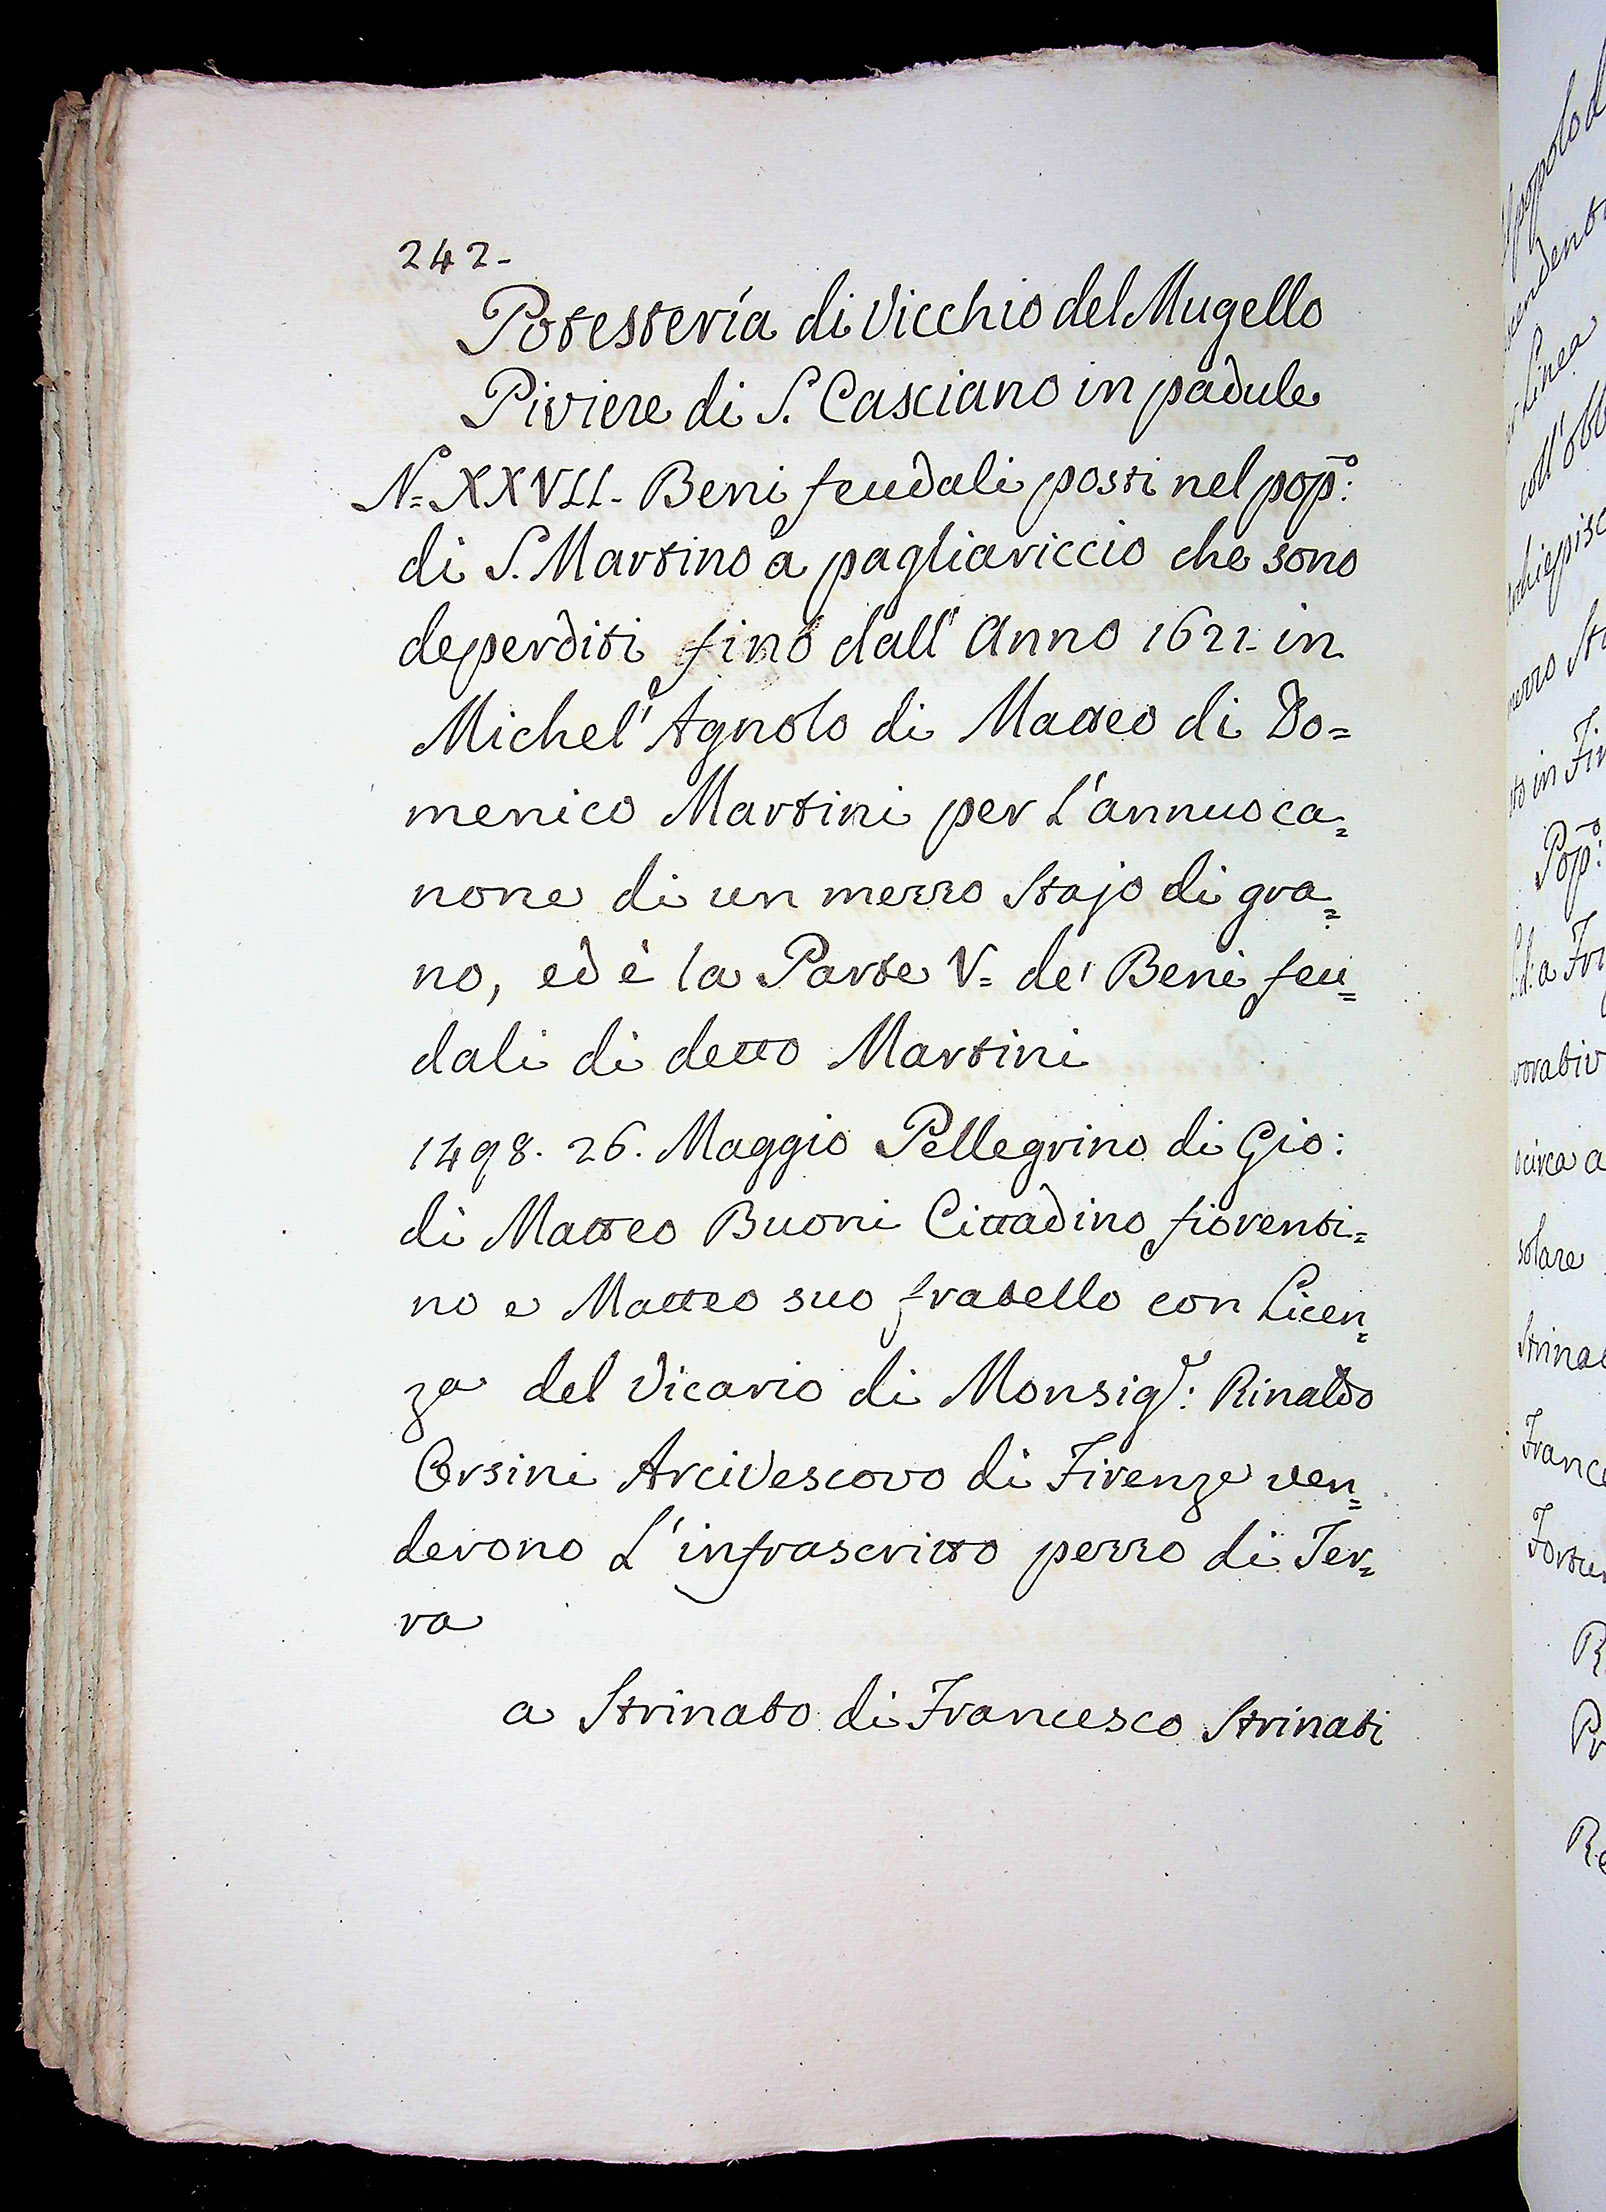 242-
Potestería di Vicchio del Mugello
Piviere di S. Casciano in padule
N.= XXVII- Beni feudali posti nel pop:º
di S. Martino a pagliariccio che sono
deperditi fino dall' Anno 1621- in
Michel' Agnolo di Matteo di Do=
menico Martini per L'annuo ca=
none di un mezzo Stajo di gra=
no, ed è la Parte V= de' Beni feu=
dali di detto Martini
1498. 26. Maggio Pellegrino di Gio:
di Matteo Buoni Cittadino fiorenti=
no e Matteo suo fratello con Licen=
za del Vicario di Monsigr: Rinaldo
Orsini Arcivescovo di Firenze ven=
derono L'infrascritto pezzo di Ter=
ra
a Strinato di Francesco Strinati